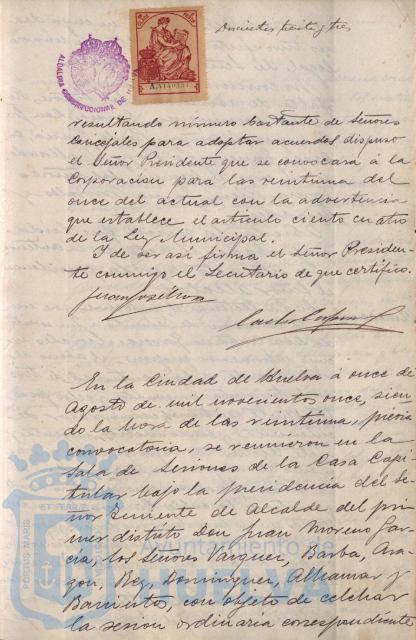 Doscientos treinta y tres
ALCALDIA CONSTITUCIONAL DE
resultando número bastante de señores
Concejales para adoptar acuerdos dispuso
el Señor Presidente que se convocara á la
Corporacion para las veintiuna del
once del actual con la advertencia
que establece el artículo ciento cuatro
de la Ley Municipal.
Y de ser así firma el Señor Presiden-
te conmigo el Secretario de que certifico.
En la Ciudad de Huelva á once de
Agosto de mil novecientos once, sien-
do la hora de las veintiuna, previa
convocatoria, se reunieron en la
Sala de Sesiones de la Casa Capi-
tular bajo la presidencia del Se-
ñor Teniente de Alcalde del pri-
mer distrito Don Juan Moreno Gar-
cia, los Señores Vazquez, Barba, Ara-
gon, Rey, Dominguez, Alhamar y
Barrientos, con objeto de celebrar
la sesion ordinaria correspondiente
PORTUS MARIS
ET TERRAE
Ayuntamiento de
HUELVA